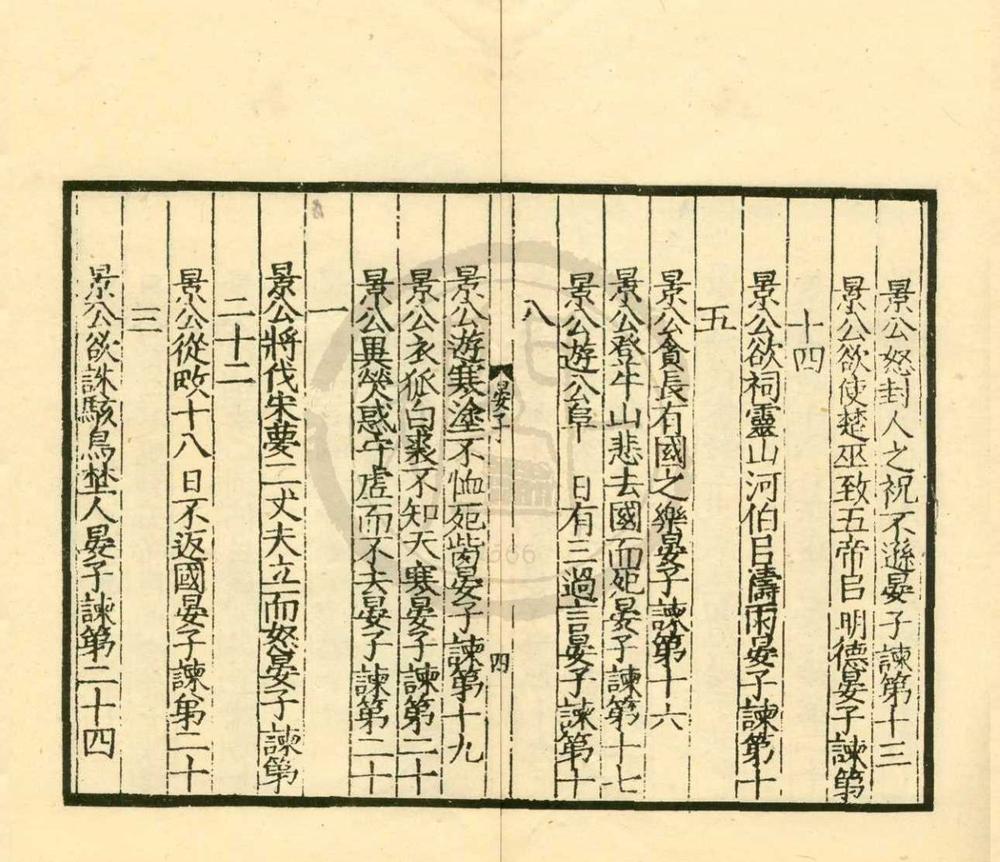 景公怒封人之祝不遜晏子諫第十三
景公欲使楚巫致五帝㠯明德晏子諫第
十四
景公欲祠靈山河伯㠯禱雨晏子諫第十
五
景公貪長有國之樂晏子諫第十六
景公登牛山悲去國而死晏子諫第十七
景公遊公阜 日有三過言晏子諫第十
八
晏子
四
景公遊寒塗不恤死胔晏子諫第十九
景公衣狐白裘不知天寒晏子諫第二十
景公異熒惑守虛而不去晏子諫第二十
一
景公將伐宋夢二丈夫立而怒晏子諫第
二十二
景公從畋十八日不返國晏子諫第二十
三
景公欲誅駭鳥埜人晏子諫第二十四